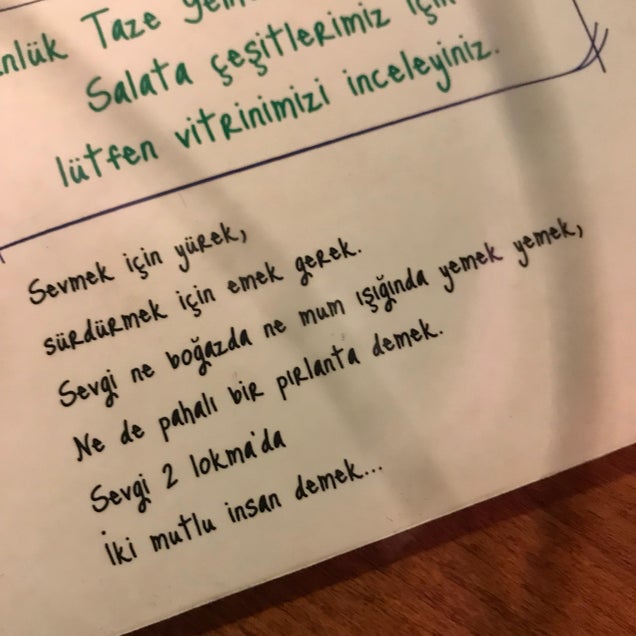 Taze
Salata çeşitlerimiz için
lütfen vitrinimizi inceleyiniz.
Sevmek için yürek,
sürdürmek için emek gerek.
Sevgi ne boğazda ne mum ışığında yemek yemek,
Ne de pahalı bir pırlanta demek.
Sevgi 2 lokma'da
İki mutlu insan demek...